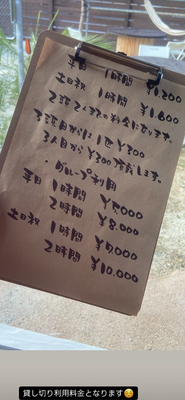 平日 1時間 ¥1,200
土日祝 1時間 ¥1,600
2頭2人までの料金になります。
3頭目からは1匹¥300
3人目から¥300頂だします。
・グループ利用
平日 1時間 ¥5,000
2時間 ¥8,000
土日祝 1時間 ¥7,000
2時間 ¥10,000
貸し切り利用料金となります😊